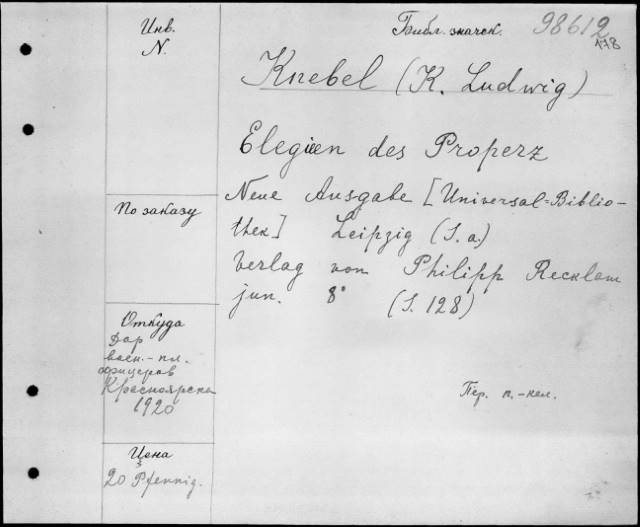 Инв.
N.
Библ. значек.
98612
178
Knebel (K. Ludwig)
Elegien des Properz
Neue Ausgabe [Universal=Biblio-
thek] Leipzig (S.a.)
Verlag von Philipp Recklam
jun. 8° (S. 128)
По заказу
Откуда
Дар
воен.-пл.
офицеров
Красноярска
1920
Пер. п.-кол.
Цена
20 Pfennig.